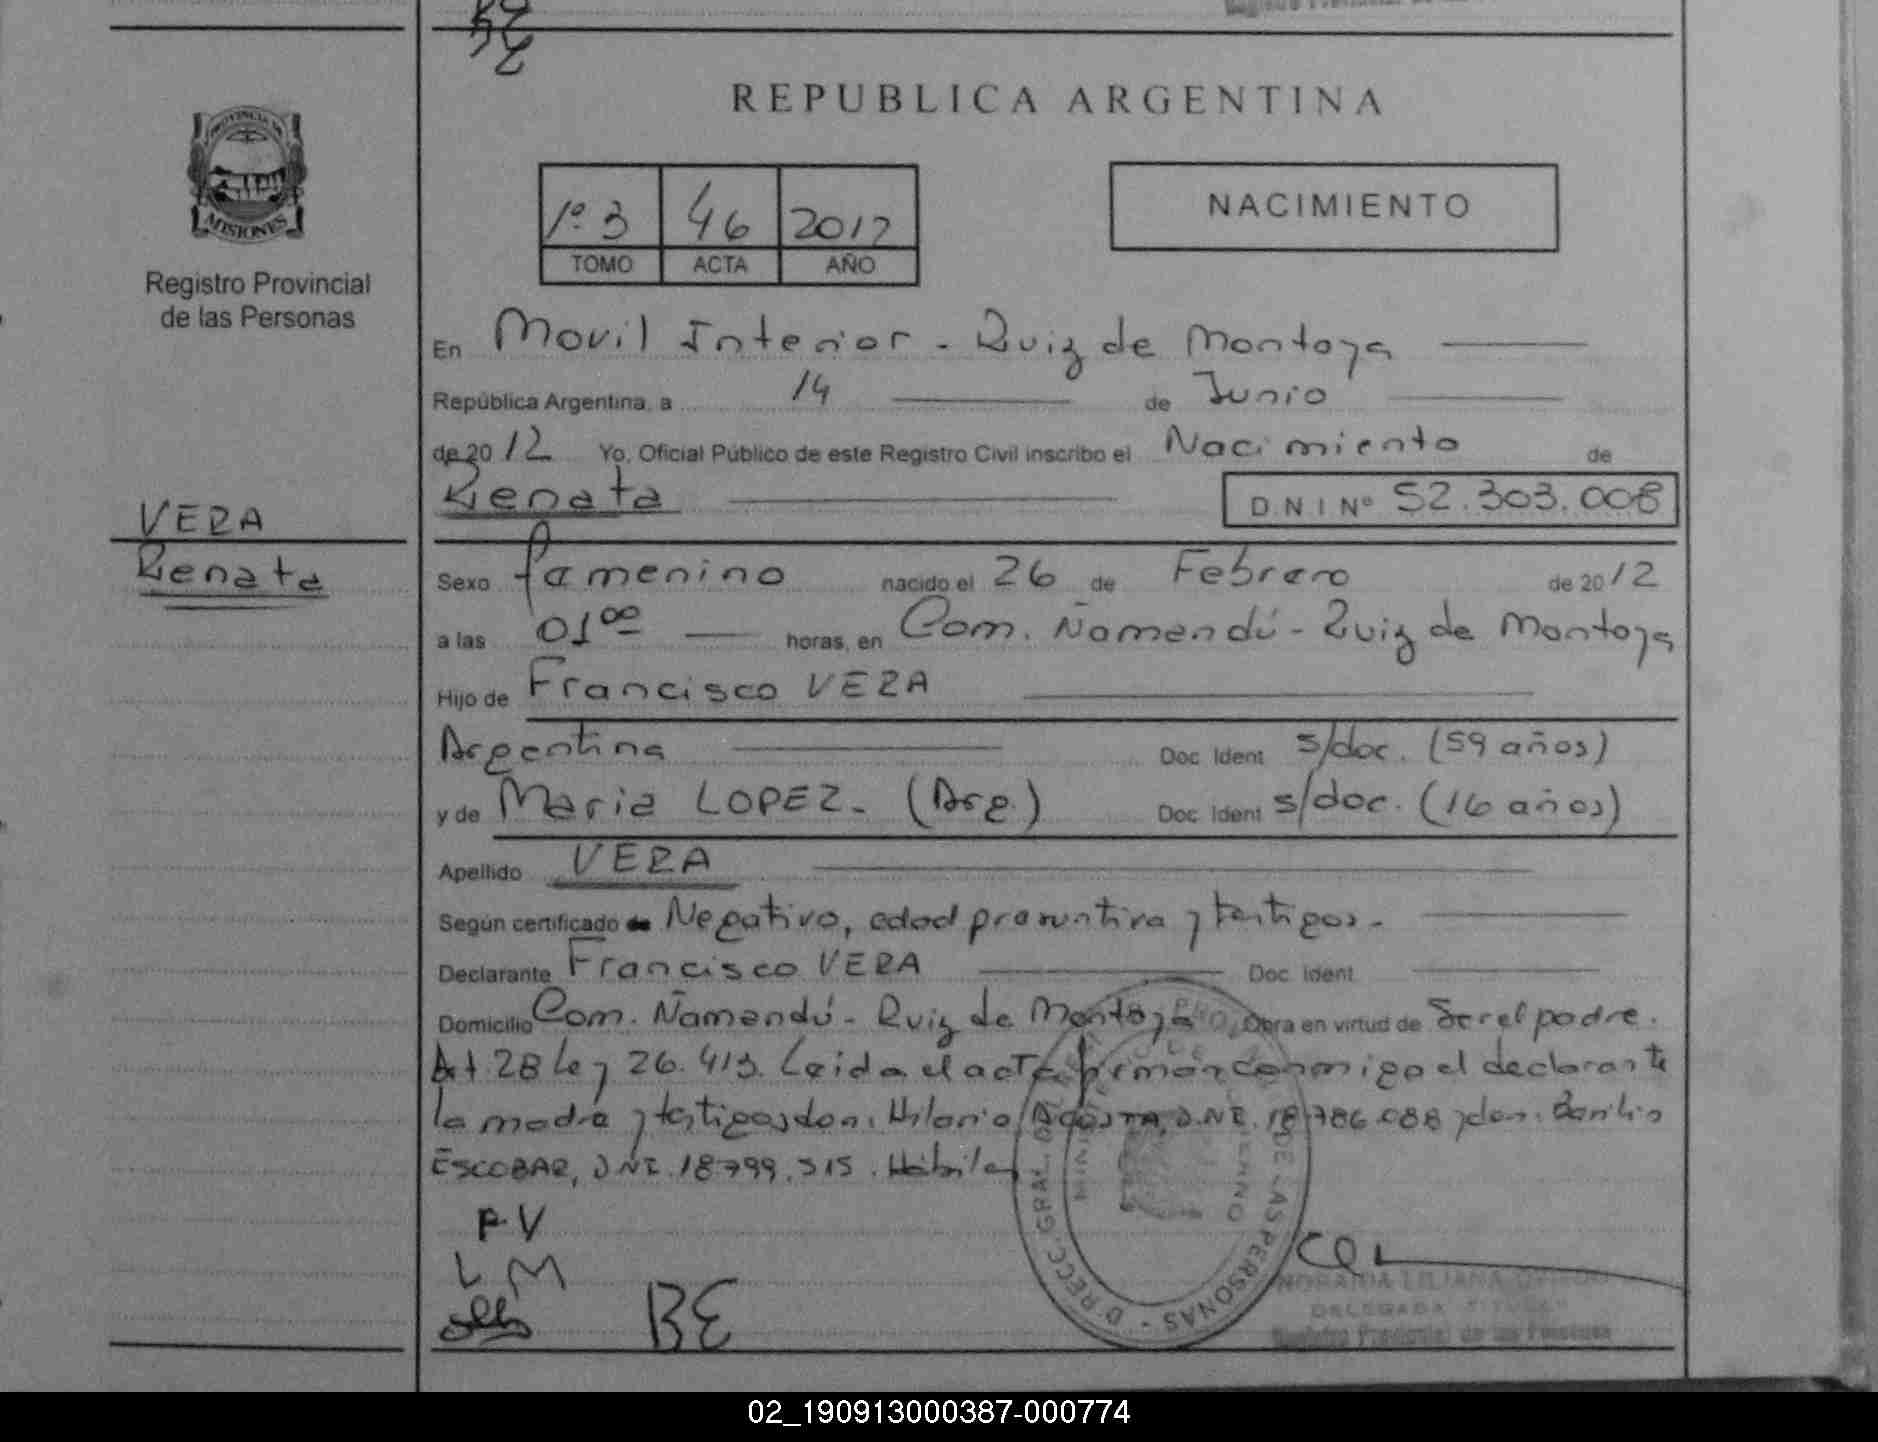 REPUBLICA ARGENTINA
PROVINCIA DE
MISIONES
Registro Provincial
de las Personas
1º 3 46 2012
TOMO ACTA AÑO
NACIMIENTO
En Movil Interior - Ruiz de Montoya
República Argentina, a 14 de Junio
de 2012 Yo, Oficial Público de este Registro Civil inscribo el Nacimiento de
Renata D.N.I Nº 52.303.008
VERA
Renata
Sexo femenino nacido el 26 de Febrero de 2012
a las 01ºº horas, en Com. Ñamandú - Ruiz de Montoya
Hijo de Francisco VERA
Argentina Doc. Ident s/doc. (59 años)
y de Maria LOPEZ - (Arg.) Doc. Ident s/doc. (16 años)
Apellido VERA
Según certificado de Negativo, edad presuntiva y testigos -
Declarante Francisco VERA Doc. Ident
Domicilio Com. Ñamandú - Ruiz de Montoya Obra en virtud de Ser el padre.
Art 28 Ley 26.413. Leida el acta firman conmigo el declarante
la madre y testigos don. Hilario ACOSTA, D.N.I. 18.786.088 y don. Basilio
ESCOBAR, DNI. 18.799.515. Hábiles
FV
LM
BE
DIRECC. GRAL. DE LAS PERSONAS
NORAIDA LILIANA
DELEGADA TITULAR
Registro Provincial de las Personas
02_190913000387-000774